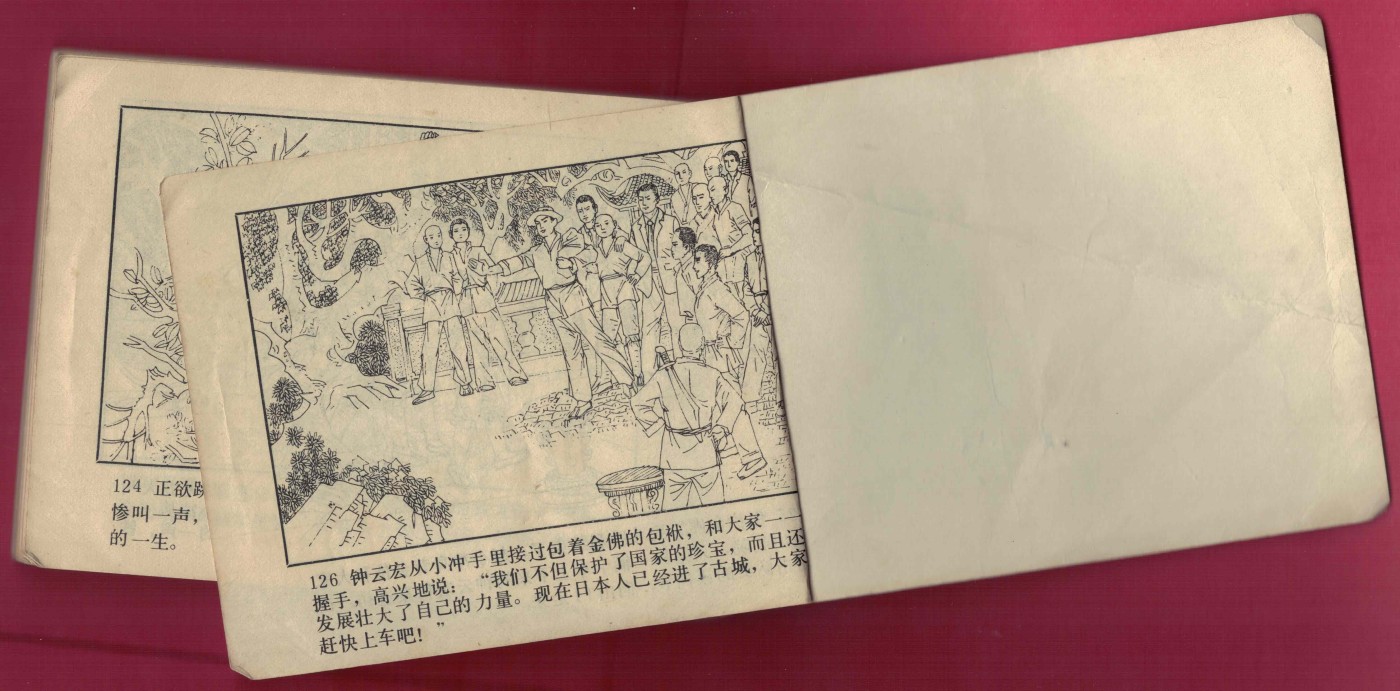 124 正欲跳
惨叫一声，
的一生。
126 钟云宏从小冲手里接过包着金佛的包袱，和大家一一
握手，高兴地说：“我们不但保护了国家的珍宝，而且还
发展壮大了自己的力量。现在日本人已经进了古城，大家
赶快上车吧！”